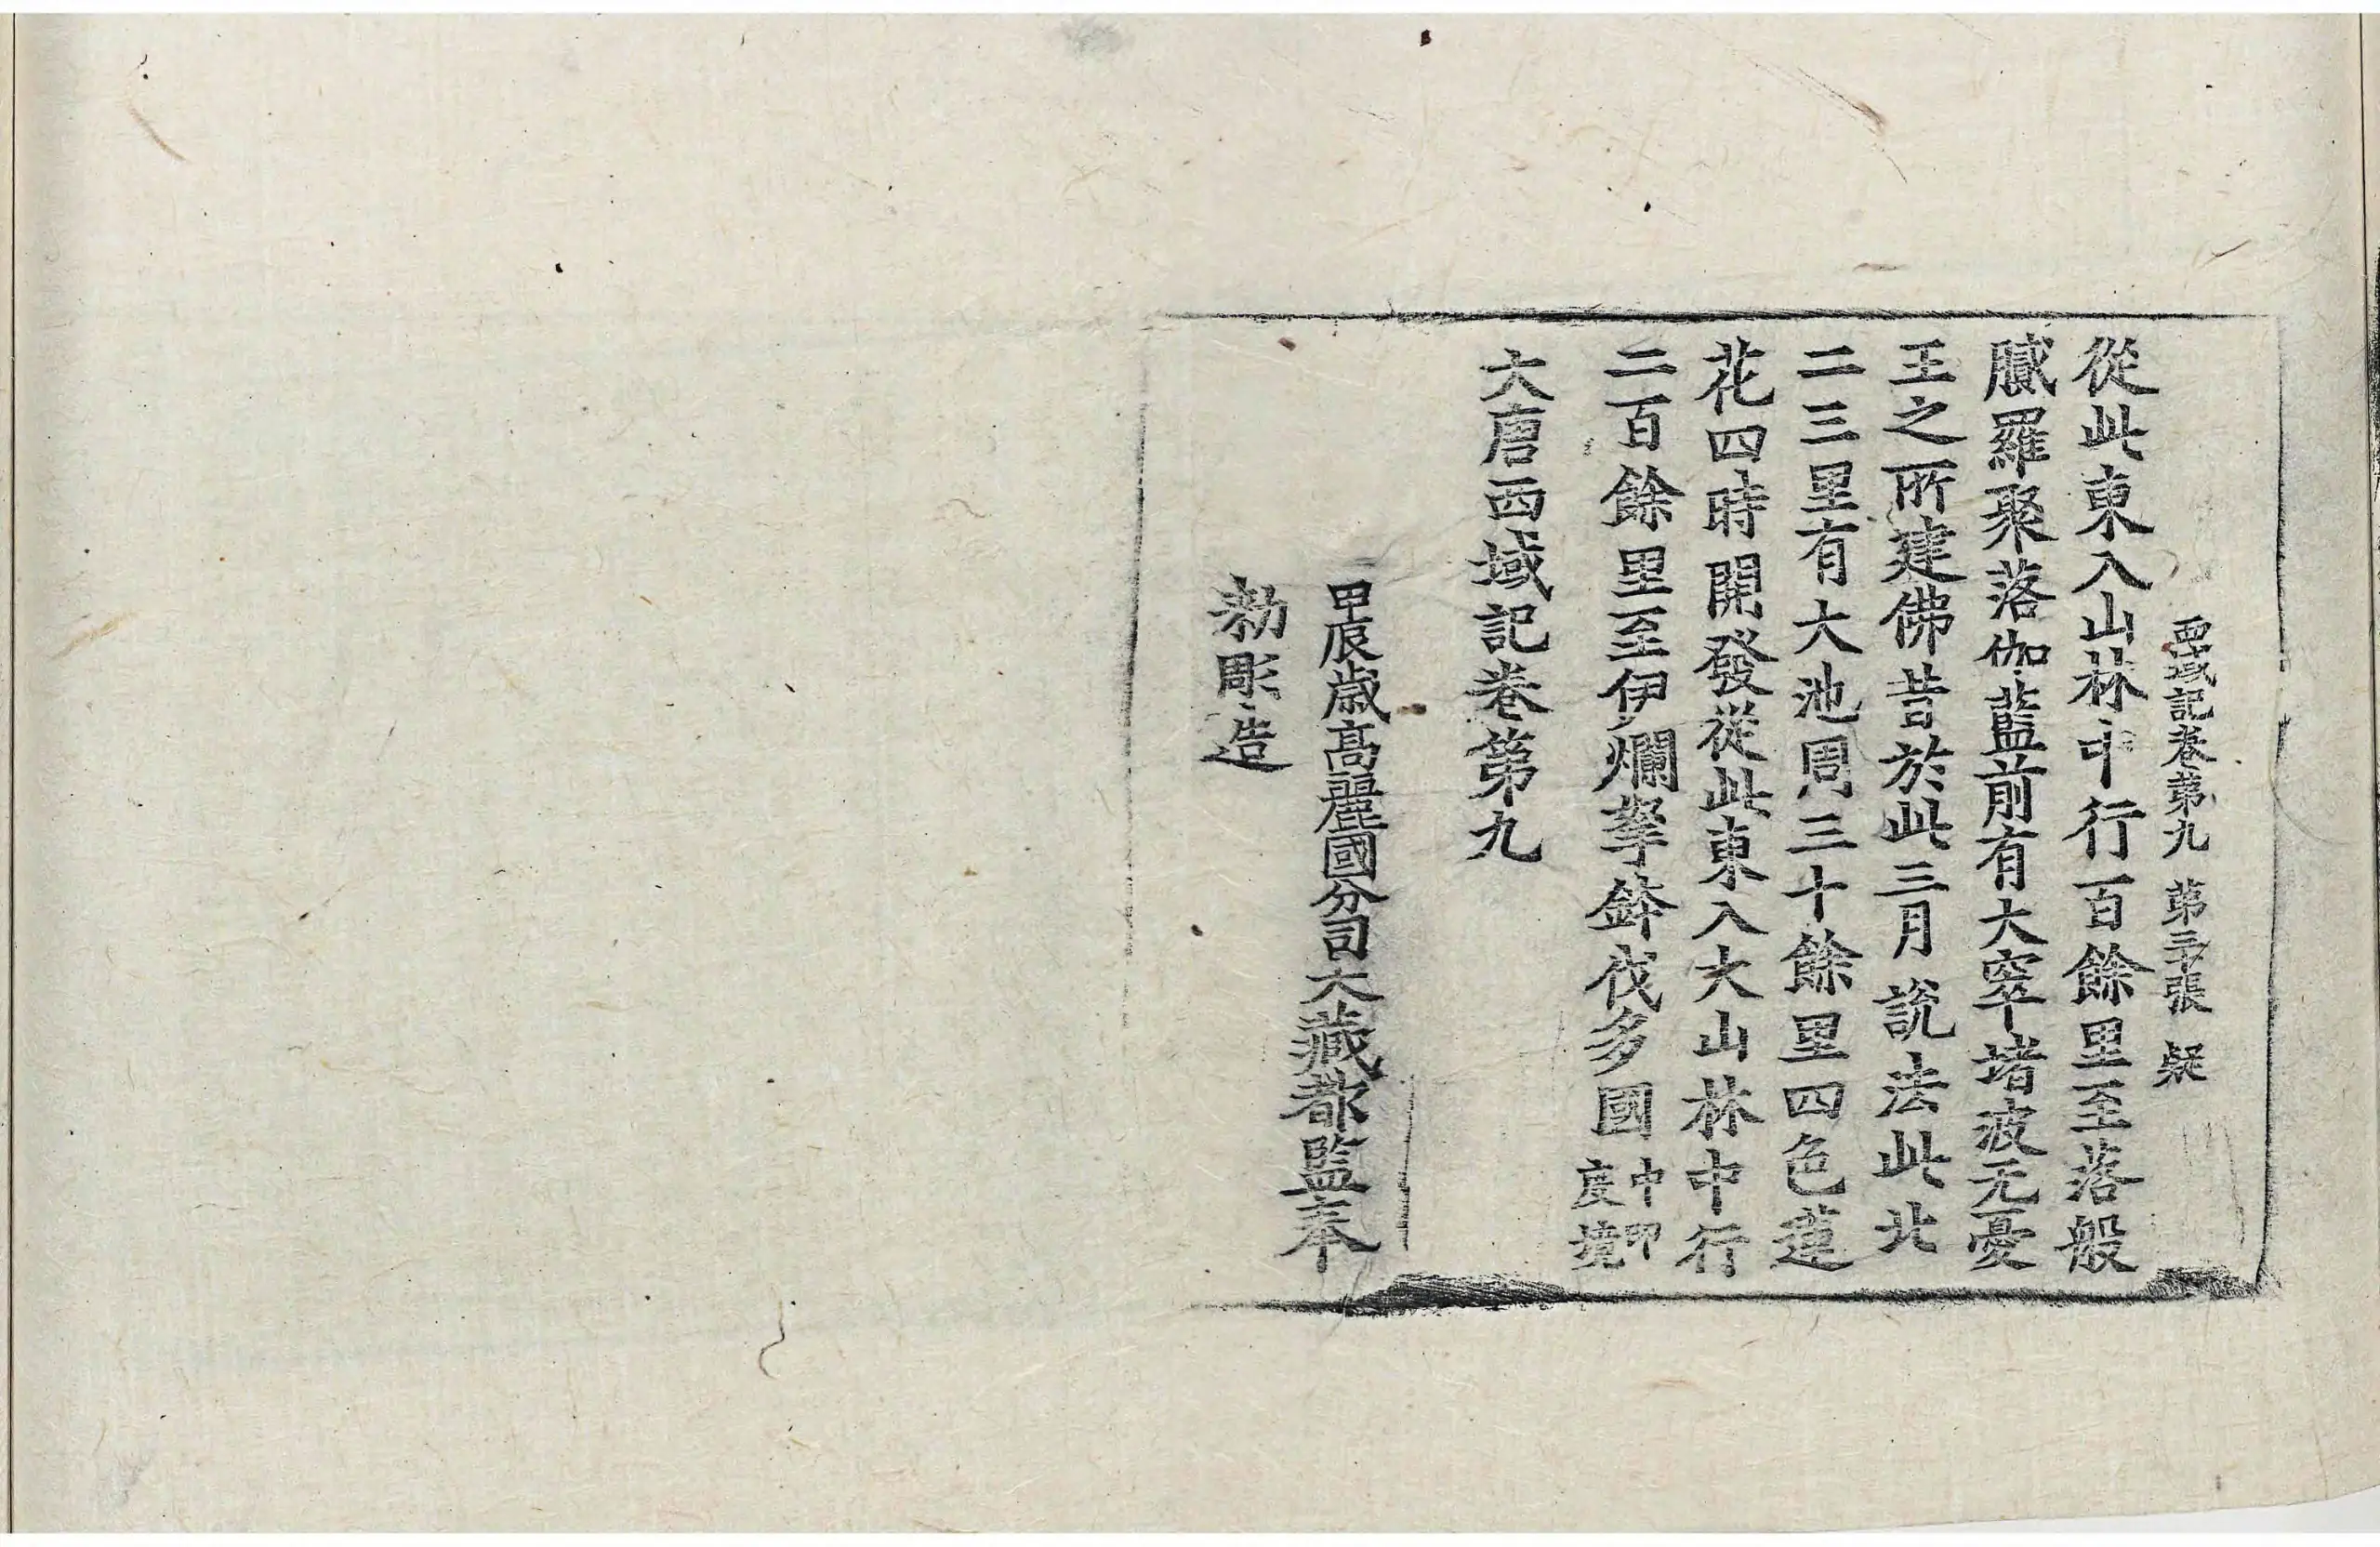 西域記卷第九 第三十張 疑
從此東入山林中行百餘里至落般
膩羅聚落伽藍前有大窣堵波无憂
王之所建佛昔於此三月說法此北
二三里有大池周三十餘里四色蓮
花四時開發從此東入大山林中行
二百餘里至伊爛拏鉢伐多國中印
度境
大唐西域記卷第九
甲辰歲高麗國分司大藏都監奉
勑彫造